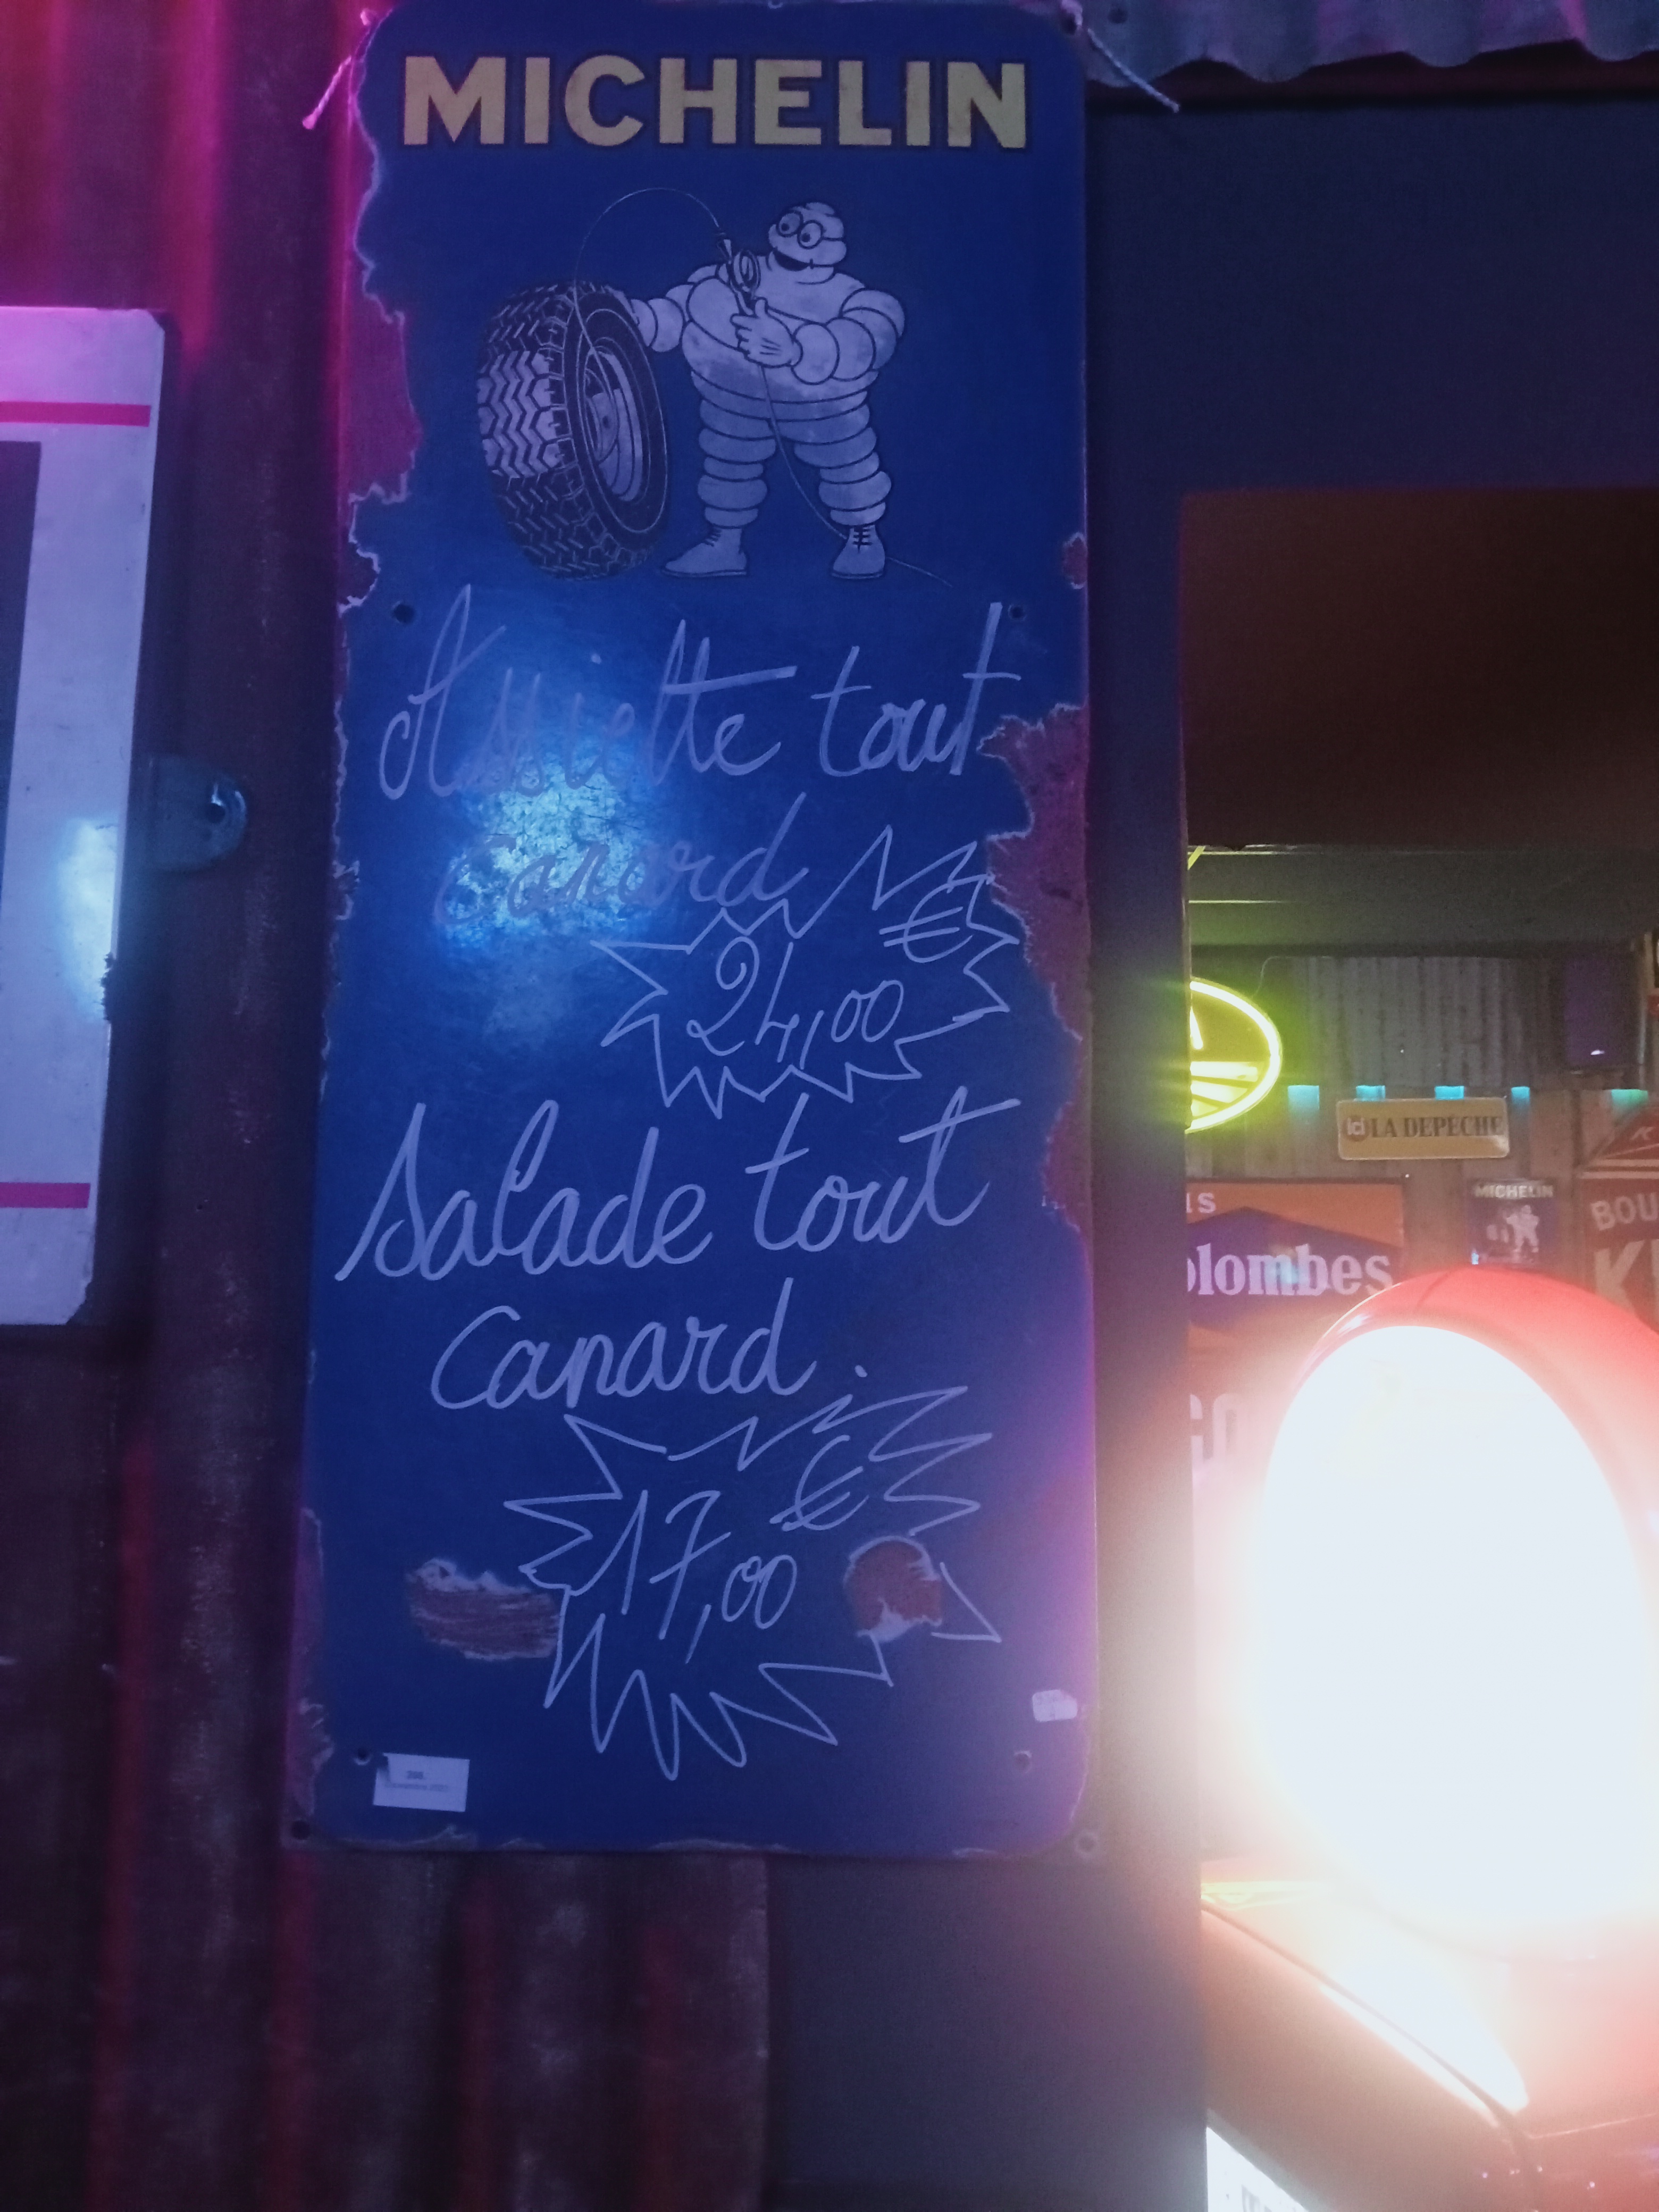 MICHELIN
Assiette tout
Canard
€
24,00
Salade tout
Canard.
€
17,00
LA DEPECHE
MICHELIN
olombes
BOU